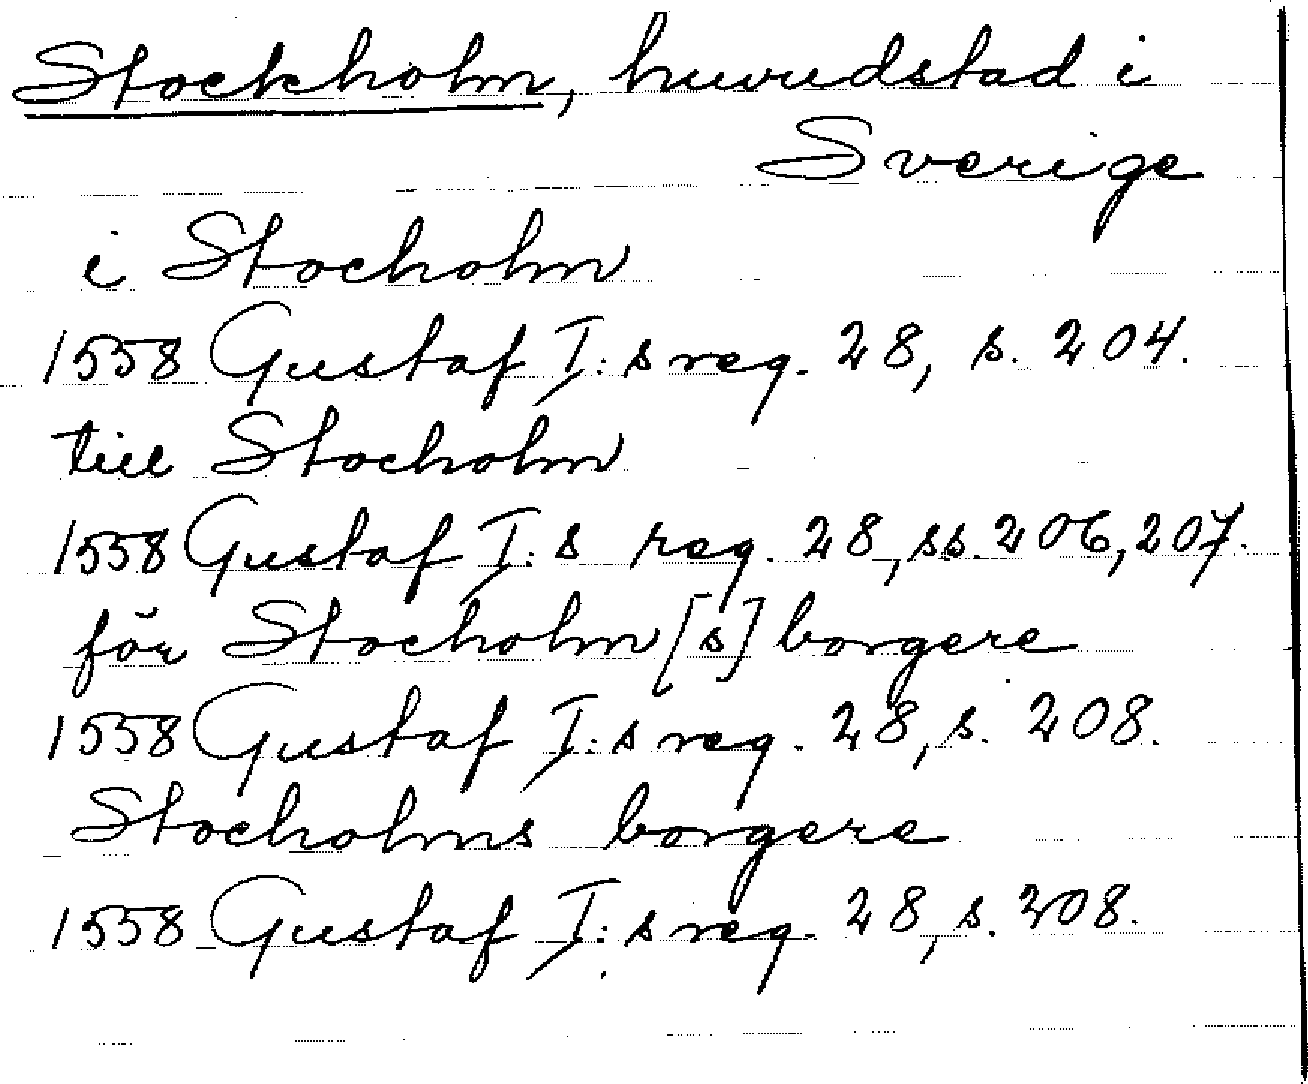 Stockholm, huvudstad i
Sverige
i Stocholm
1558 Gustaf I:s reg. 28, s. 204.
till Stocholm
1558 Gustaf I:s reg. 28, ss. 206, 207.
för Stocholm[s] borgere
1558 Gustaf I:s reg. 28, s. 208.
Stocholms borgere
1558 Gustaf I:s reg. 28, s. 208.